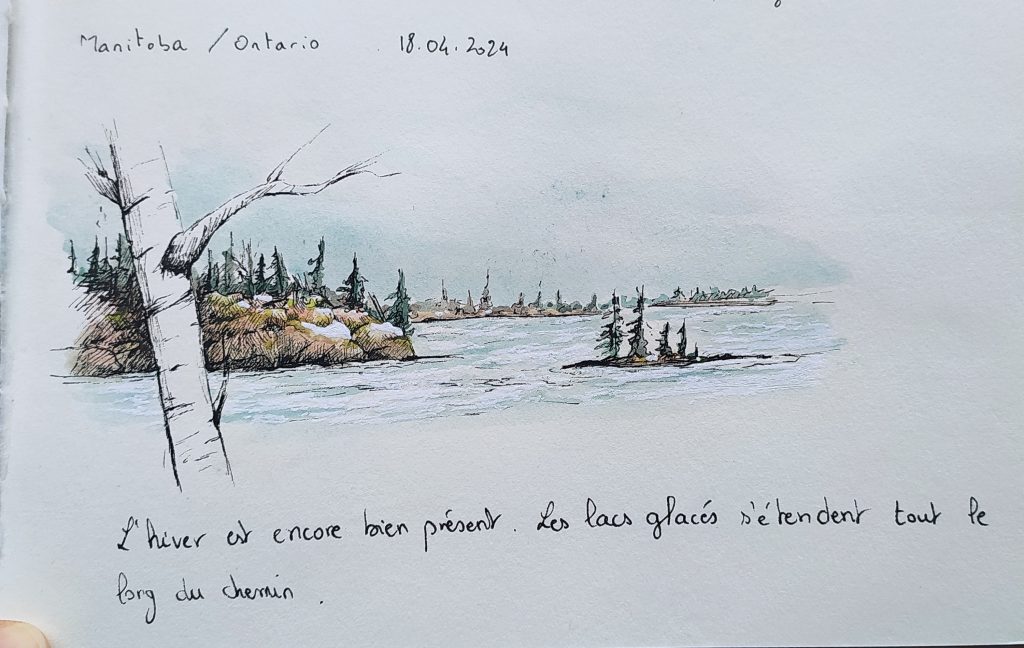 Manitoba / Ontario 18.04.2024
L'hiver est encore bien présent. Les lacs glacés s'étendent tout le
long du chemin.